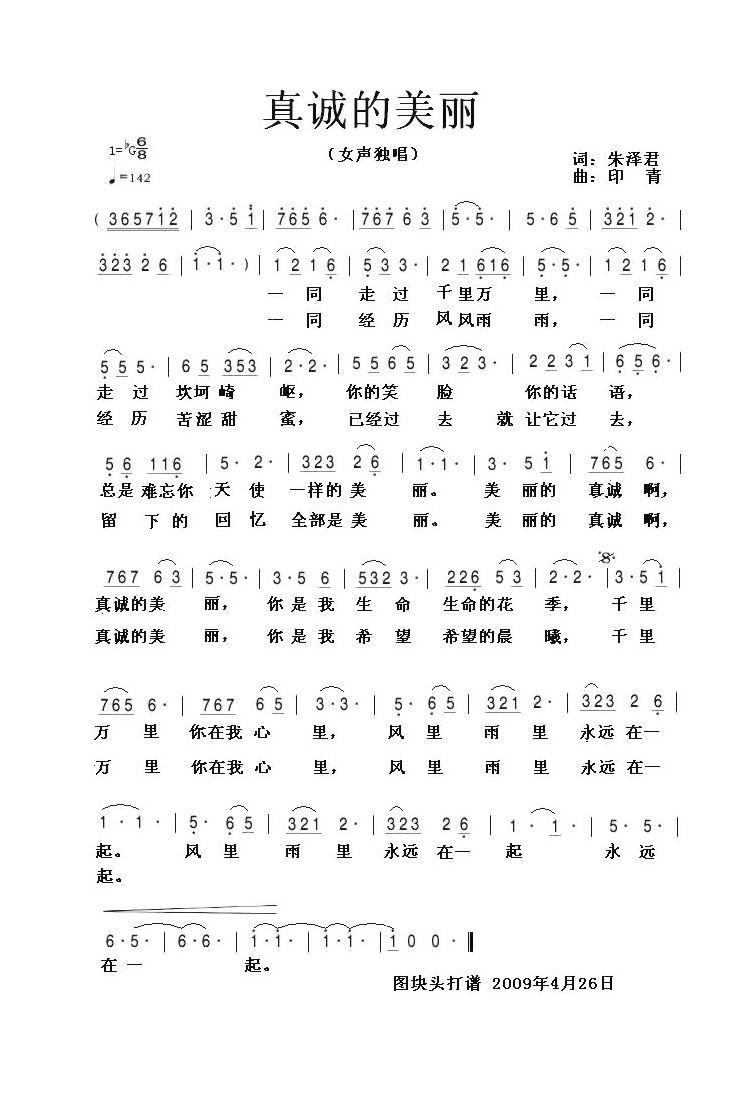 真诚的美丽
（女声独唱）
1=♭G 6/8
♩=142
词：朱泽君
曲：印 青
( 365712 | 3·5 1 | 765 6· | 767 6 3 | 5·5· | 5·6 5 | 321 2· |
323 2 6 | 1·1· ) | 1 2 1 6 | 5 3 3· | 2 1 616 | 5·5· | 1 2 1 6 |
一 同 走 过 千里万 里， 一 同
一 同 经 历 风风雨 雨， 一 同
5 5 5· | 6 5 353 | 2·2· | 5 5 6 5 | 3 2 3· | 2 2 3 1 | 6 5 6· |
走 过 坎坷 崎 岖， 你的笑 脸 你的话 语，
经 历 苦涩甜 蜜， 已经过 去 就 让它过 去，
5 6 116 | 5· 2· | 323 2 6 | 1·1· | 3· 5 1 | 765 6· |
总是 难忘你 天 使 一样的 美 丽。 美 丽的 真诚 啊，
留 下 的 回 忆 全部是 美 丽。 美 丽的 真诚 啊，
767 6 3 | 5·5· | 3·5 6 | 532 3· | 226 5 3 | 2·2· | 3·5 1 |
真诚的美 丽， 你 是 我 生 命 生命的花 季， 千 里
真诚的美 丽， 你 是 我 希 望 希望的晨 曦， 千 里
765 6· | 767 6 5 | 3·3· | 5· 6 5 | 321 2· | 323 2 6 |
万 里 你在我 心 里， 风 里 雨 里 永远 在一
万 里 你在我 心 里， 风 里 雨 里 永远 在一
1 · 1 · | 5· 6 5 | 321 2· | 323 2 6 | 1 · 1 · | 5· 5· |
起。 风 里 雨 里 永远 在一 起 永 远
起。
6·5· | 6·6· | 1·1· | 1·1· | 1 0 0 · ‖
在 一 起。
图块头打谱 2009年4月26日